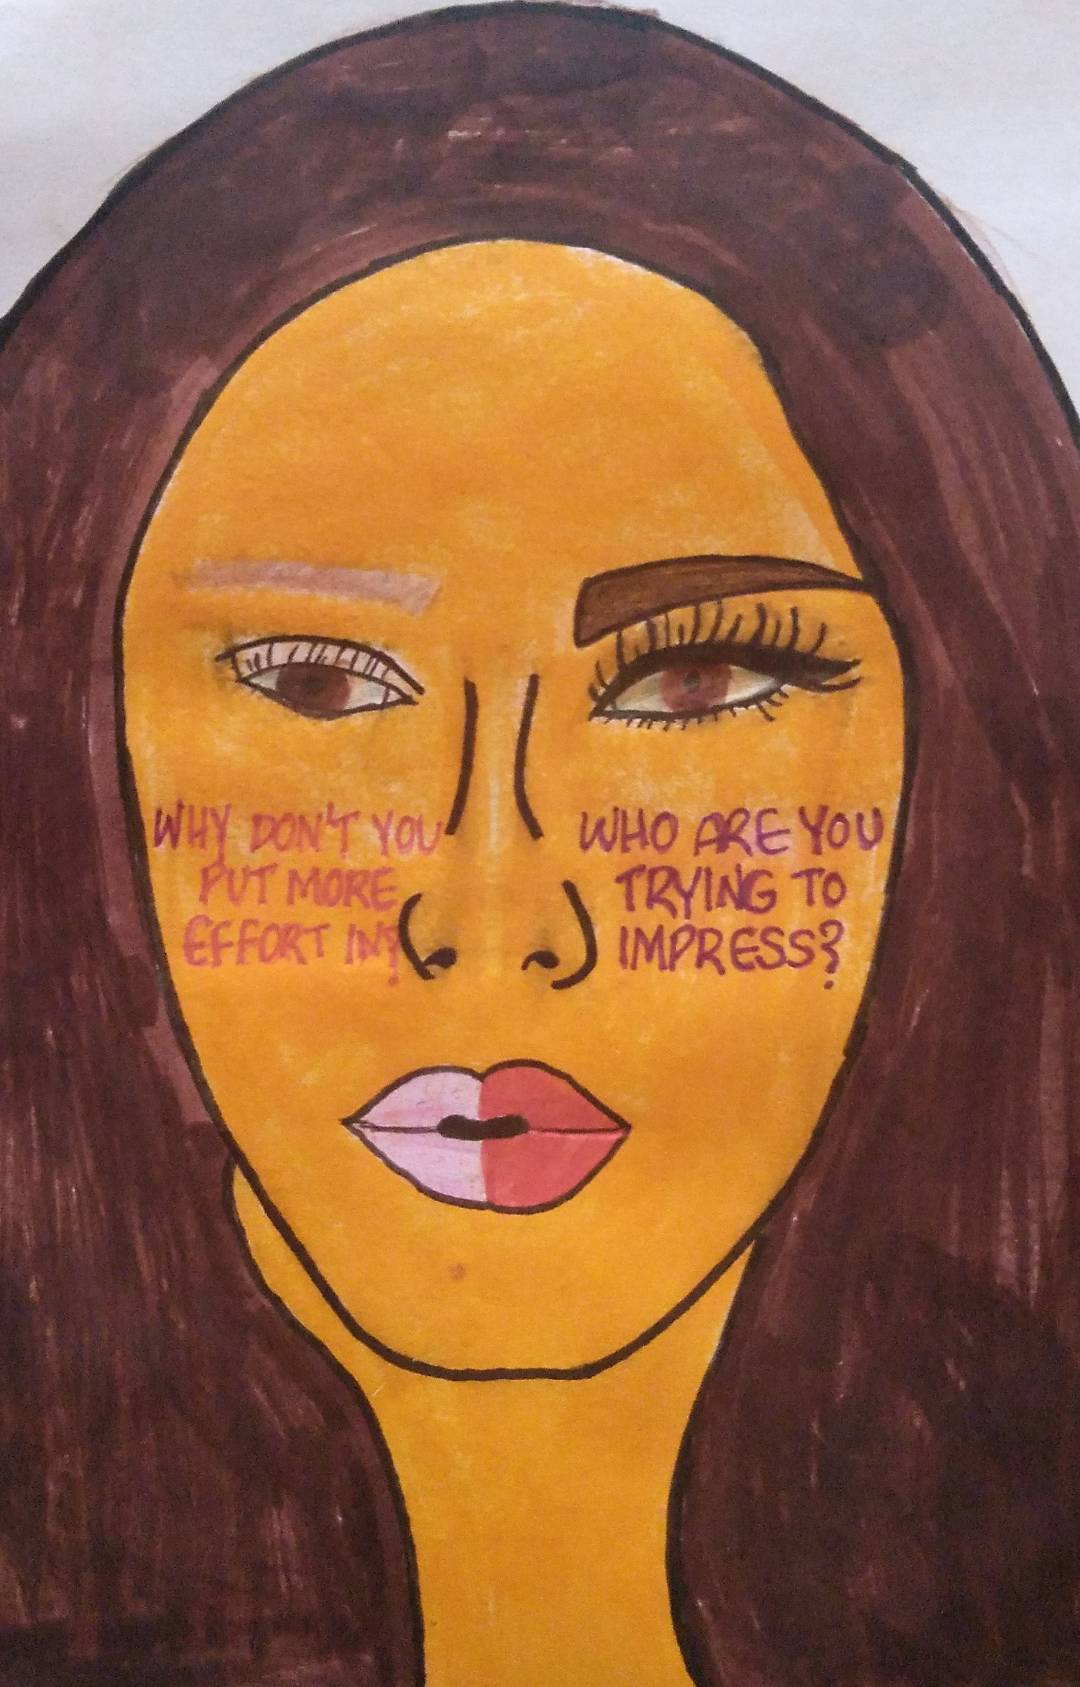 WHY DON'T YOU
PUT MORE
EFFORT IN?
WHO ARE YOU
TRYING TO
IMPRESS?